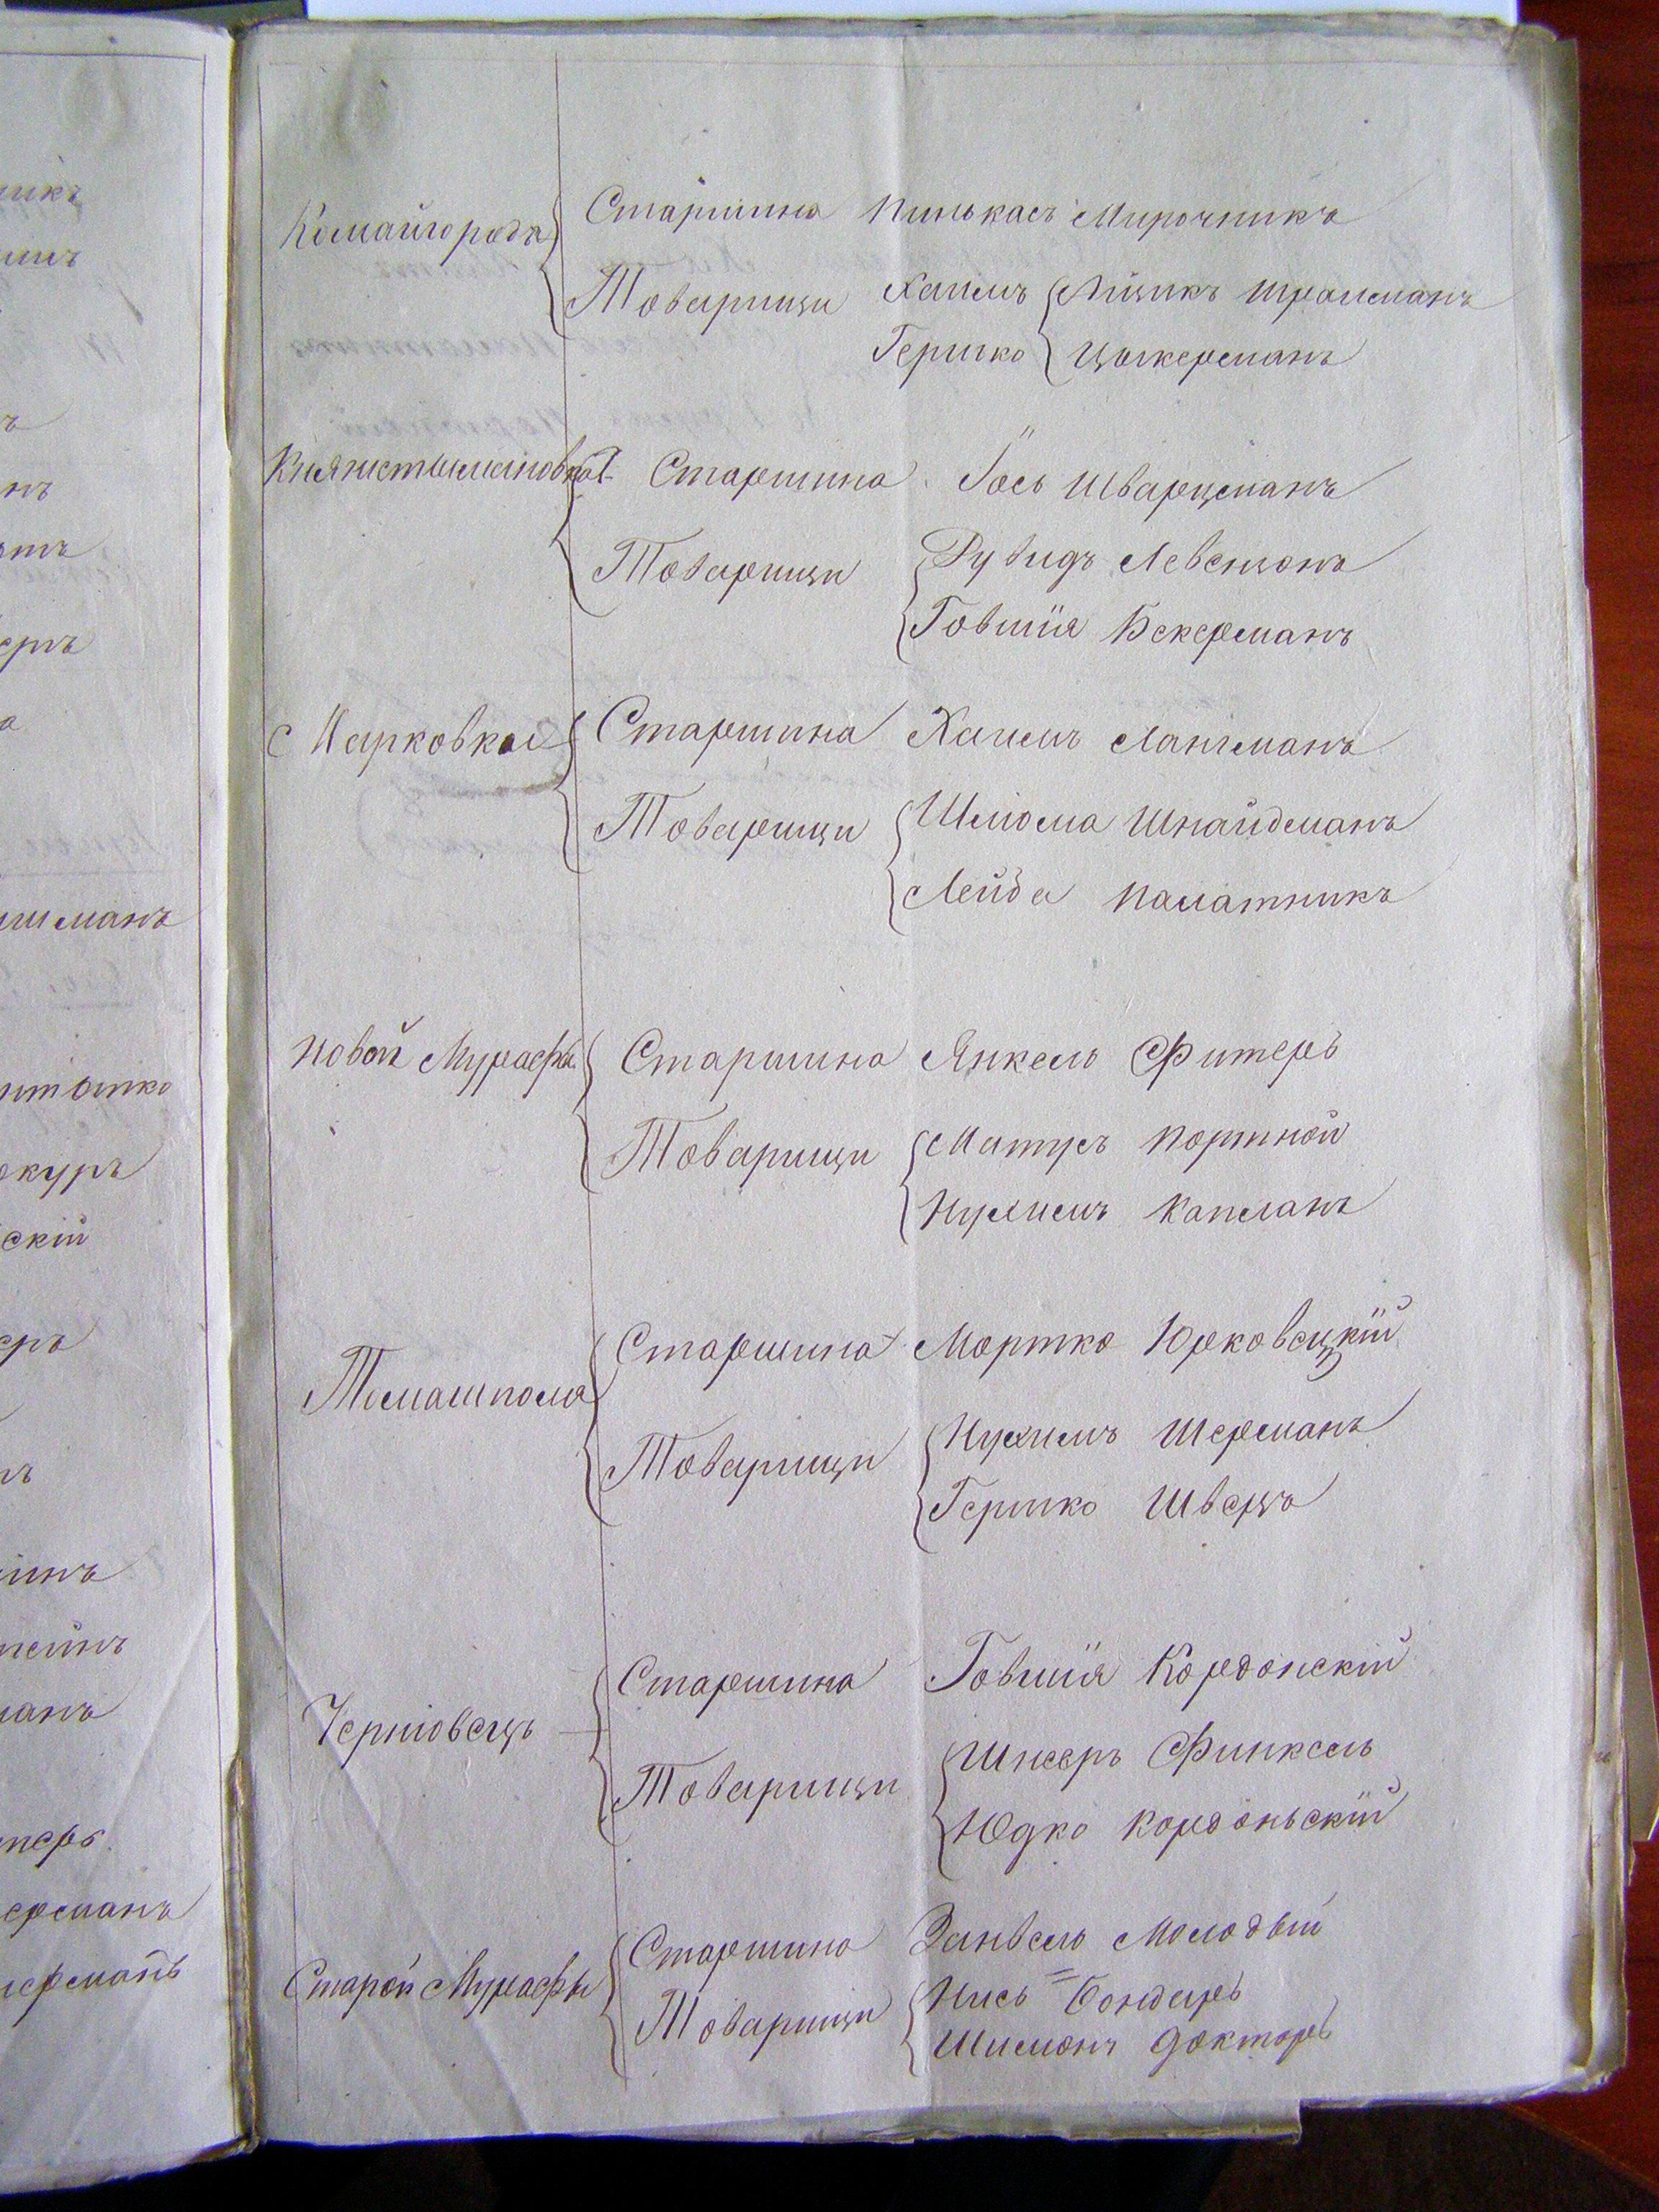 Комайгорода
Старшина Пинькасъ Мирочникъ
Товарищи Хаимъ Аицикъ Шраисманъ
Гершко Цыкерманъ
Старшина Іось Шварцманъ
Товарищи Рувидъ Левензонъ
Говшія Бекерманъ
с Жарковка
Старшина Хаимъ Лангманъ
Товарищи Шліома Шнайдманъ
Лейба Палатникъ
Новой Мурафы
Старшина Янкель Фитерь
Товарищи Матусъ Портной
Нухимъ Капланъ
Томашполя
Старшина Мортко Юрковецкій
Товарищи Нухимъ Шерманъ
Гершко Швецъ
Черніовецъ
Старшина Говшія Кордонскій
Товарищи Шнееръ Финкель
Юдко Кордоньскій
Старой Мурафы
Старшина Занвель Молодый
Товарищи Нись = Бондарь
Шимонъ Докторъ